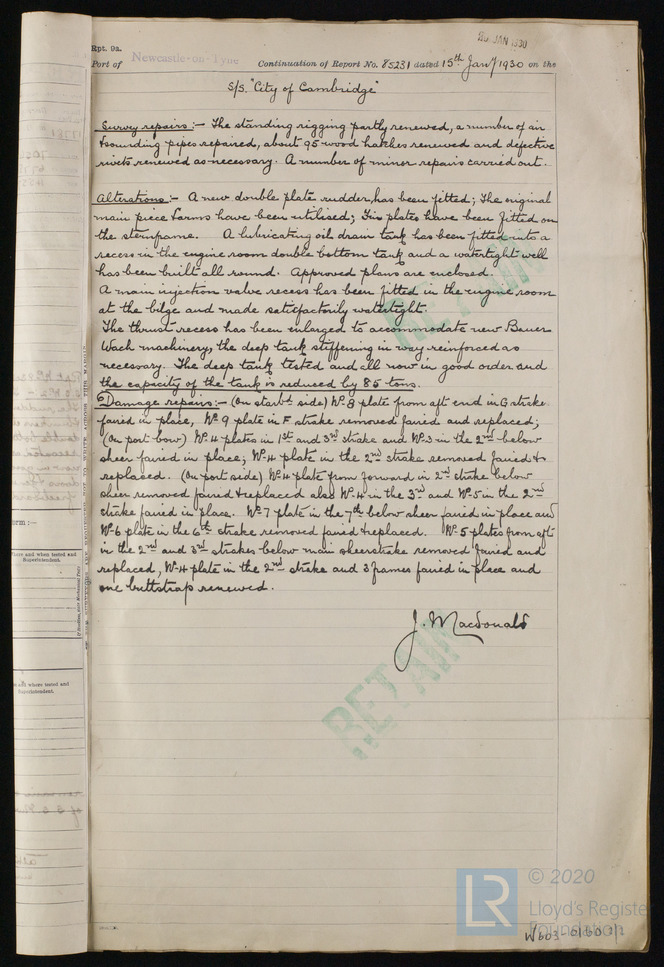 20 JAN 1930
Rpt. 9a.
Port of Newcastle-on-Tyne Continuation of Report No. 85231 dated 15th Jany 1930 on the
S/S. "City of Cambridge"
Survey repairs:- The standing rigging partly renewed, a number of air
& sounding pipes repaired, about 95 wood hatches renewed and defective
rivets renewed as necessary. A number of minor repairs carried out.
Alterations:- A new double plate rudder, has been fitted; The original
main piece & arms have been utilised; Fin plates have been fitted on
the sternframe. A lubricating oil drain tank has been fitted into a
recess in the engine room double bottom tank and a watertight well
has been built all round. Approved plans are enclosed.
A main injection valve recess has been fitted in the engine room
at the bilge and made satisfactorily watertight.
The thrust recess has been enlarged to accommodate new Bauer
Wach machinery, the deep tank stiffening in way reinforced as
necessary. The deep tank tested and all now in good order and
the capacity of the tank is reduced by 85 tons.
Damage repairs:- (On starbd side) No 8 plate from aft end in G strake
faired in place, No 9 plate in F strake removed faired and replaced;
(On port bow) No 4 plates in 1st and 3rd strake and No 3 in the 2nd below
sheer faired in place; No 4 plate in the 2nd strake removed faired &
replaced. (On port side) No 4 plate from forward in 2nd strake below
sheer removed faired & replaced also No 4 in the 3rd and No 5 in the 2nd
strake faired in place. No 7 plate in the 7th below sheer faired in place and
No 6 plate in the 6th strake removed faired & replaced. No 5 plates from aft
in the 2nd and 3rd strakes below main sheerstrake removed faired and
replaced, No 4 plate in the 2nd strake and 3 frames faired in place and
one buttstrap renewed.
J. Macdonald
RETAIN
RETAIN
orm :—
where and when tested and
Superintendent.
and where tested and
Superintendent.
LR
© 2020
Lloyd's Register
Foundation
W603-0160